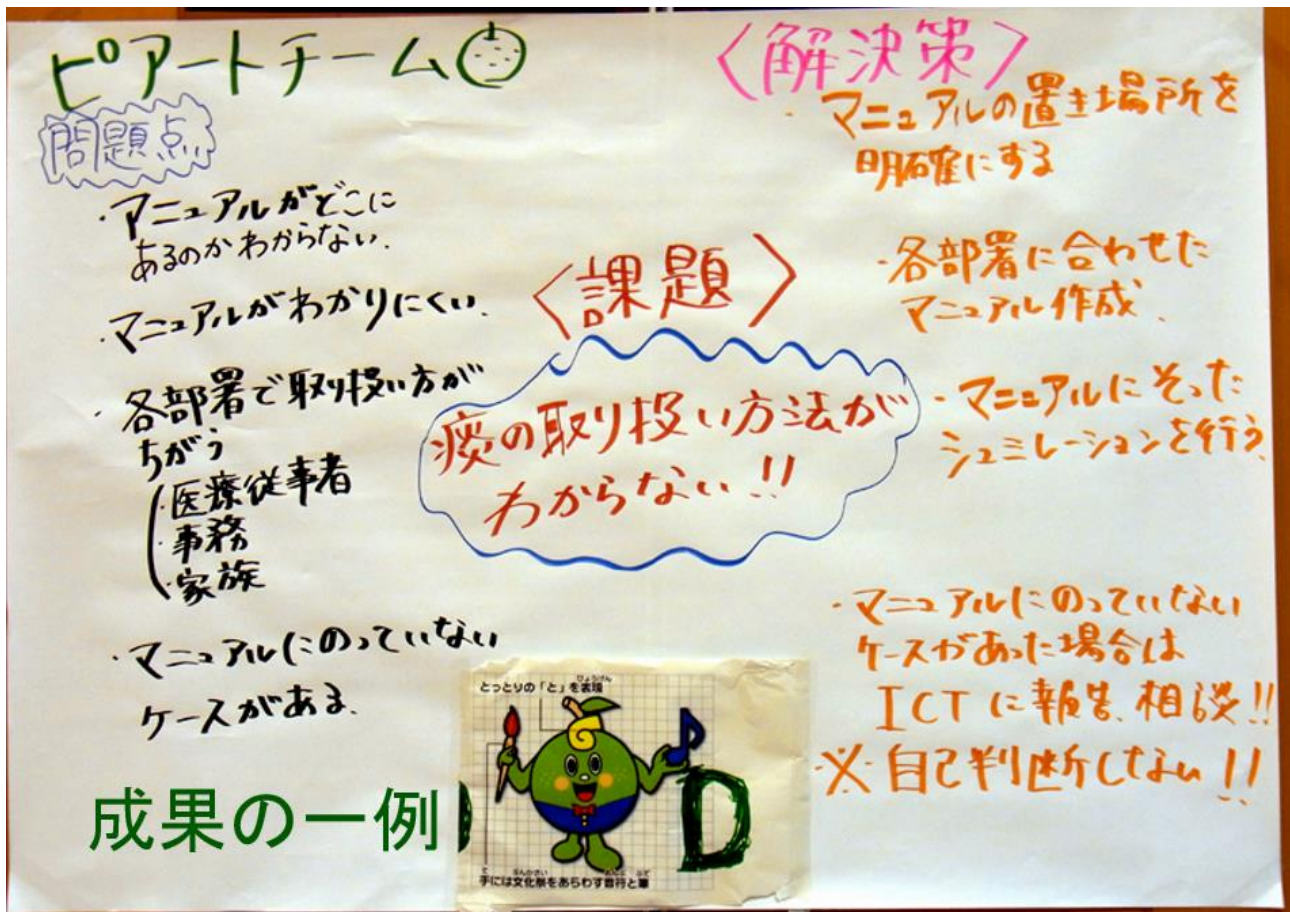 ピアートチーム
問題点
・マニュアルがどこに
あるのかわからない.
・マニュアルがわかりにくい.
・各部署で取り扱い方が
ちがう
・医療従事者
・事務
・家族
・マニュアルにのっていない
ケースがある.
〈課題〉
痰の取り扱い方法が
わからない!!
〈解決策〉
・マニュアルの置き場所を
明確にする
・各部署に合わせた
マニュアル作成.
・マニュアルにそった
シュミレーションを行う.
・マニュアルにのっていない
ケースがあった場合は
ICTに報告.相談!!
※自己判断しない!!
とっとりの「と」を表現
ひょうげん
D
手には文化祭をあらわす音符と筆
成果の一例